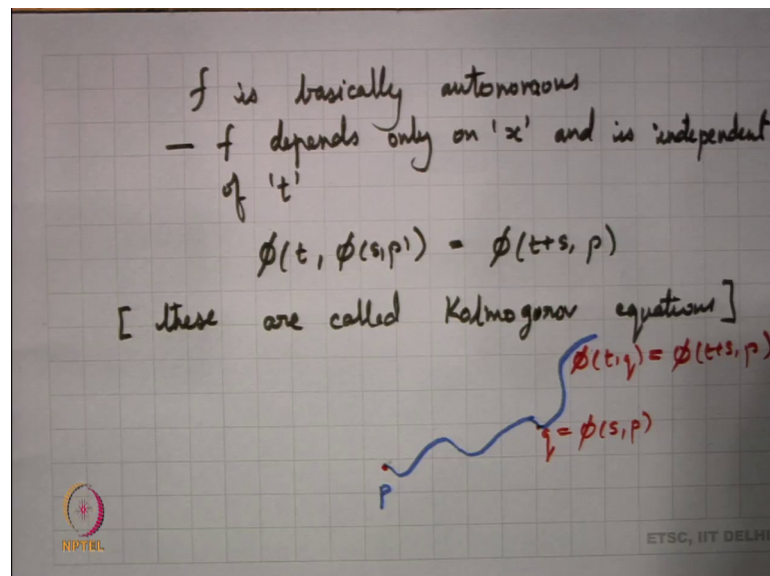 f is basically autonomous
— f depends only on 'x' and is independent
of 't'
ϕ(t, ϕ(s,p)) = ϕ(t+s, p)
[ these are called Kolmogorov equations ]
ϕ(t,q) = ϕ(t+s, p)
q = ϕ(s,p)
P
NPTEL
ETSC, IIT DELHI